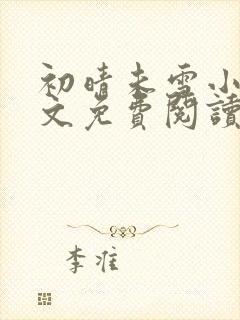 初晴未雪小
文免費閱讀
李准